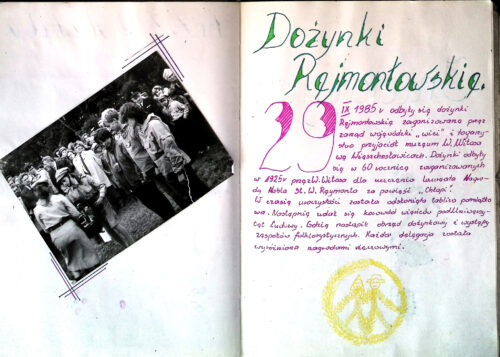 Dożynki
Rejmontowskie.
29 IX 1985 r odbyły się dożynki
Rejmontowskie zorganizowane przez
zarząd wojewódzki „wici" i towarzy-
stwo przyjaciół muzeum W. Witosa
w Wierzchosławicach. Dożynki odbyły
się w 60 rocznicę zorganizowanych
w 1925r przez W. Witosa dla uczczenia laureata Nagro-
dy Nobla St. W. Reymonta za powieść „Chłopi".
W czasie uroczystości została odsłonięta tablica pamiątko
wa. Następnie udał się korowód wieńców pod
Ludowy. Gdzie nastąpił obrzęd dożynkowy i występy
zespołów folklorystycznych. Każda delegacja została
wyróżniona nagrodami rzeczowymi.